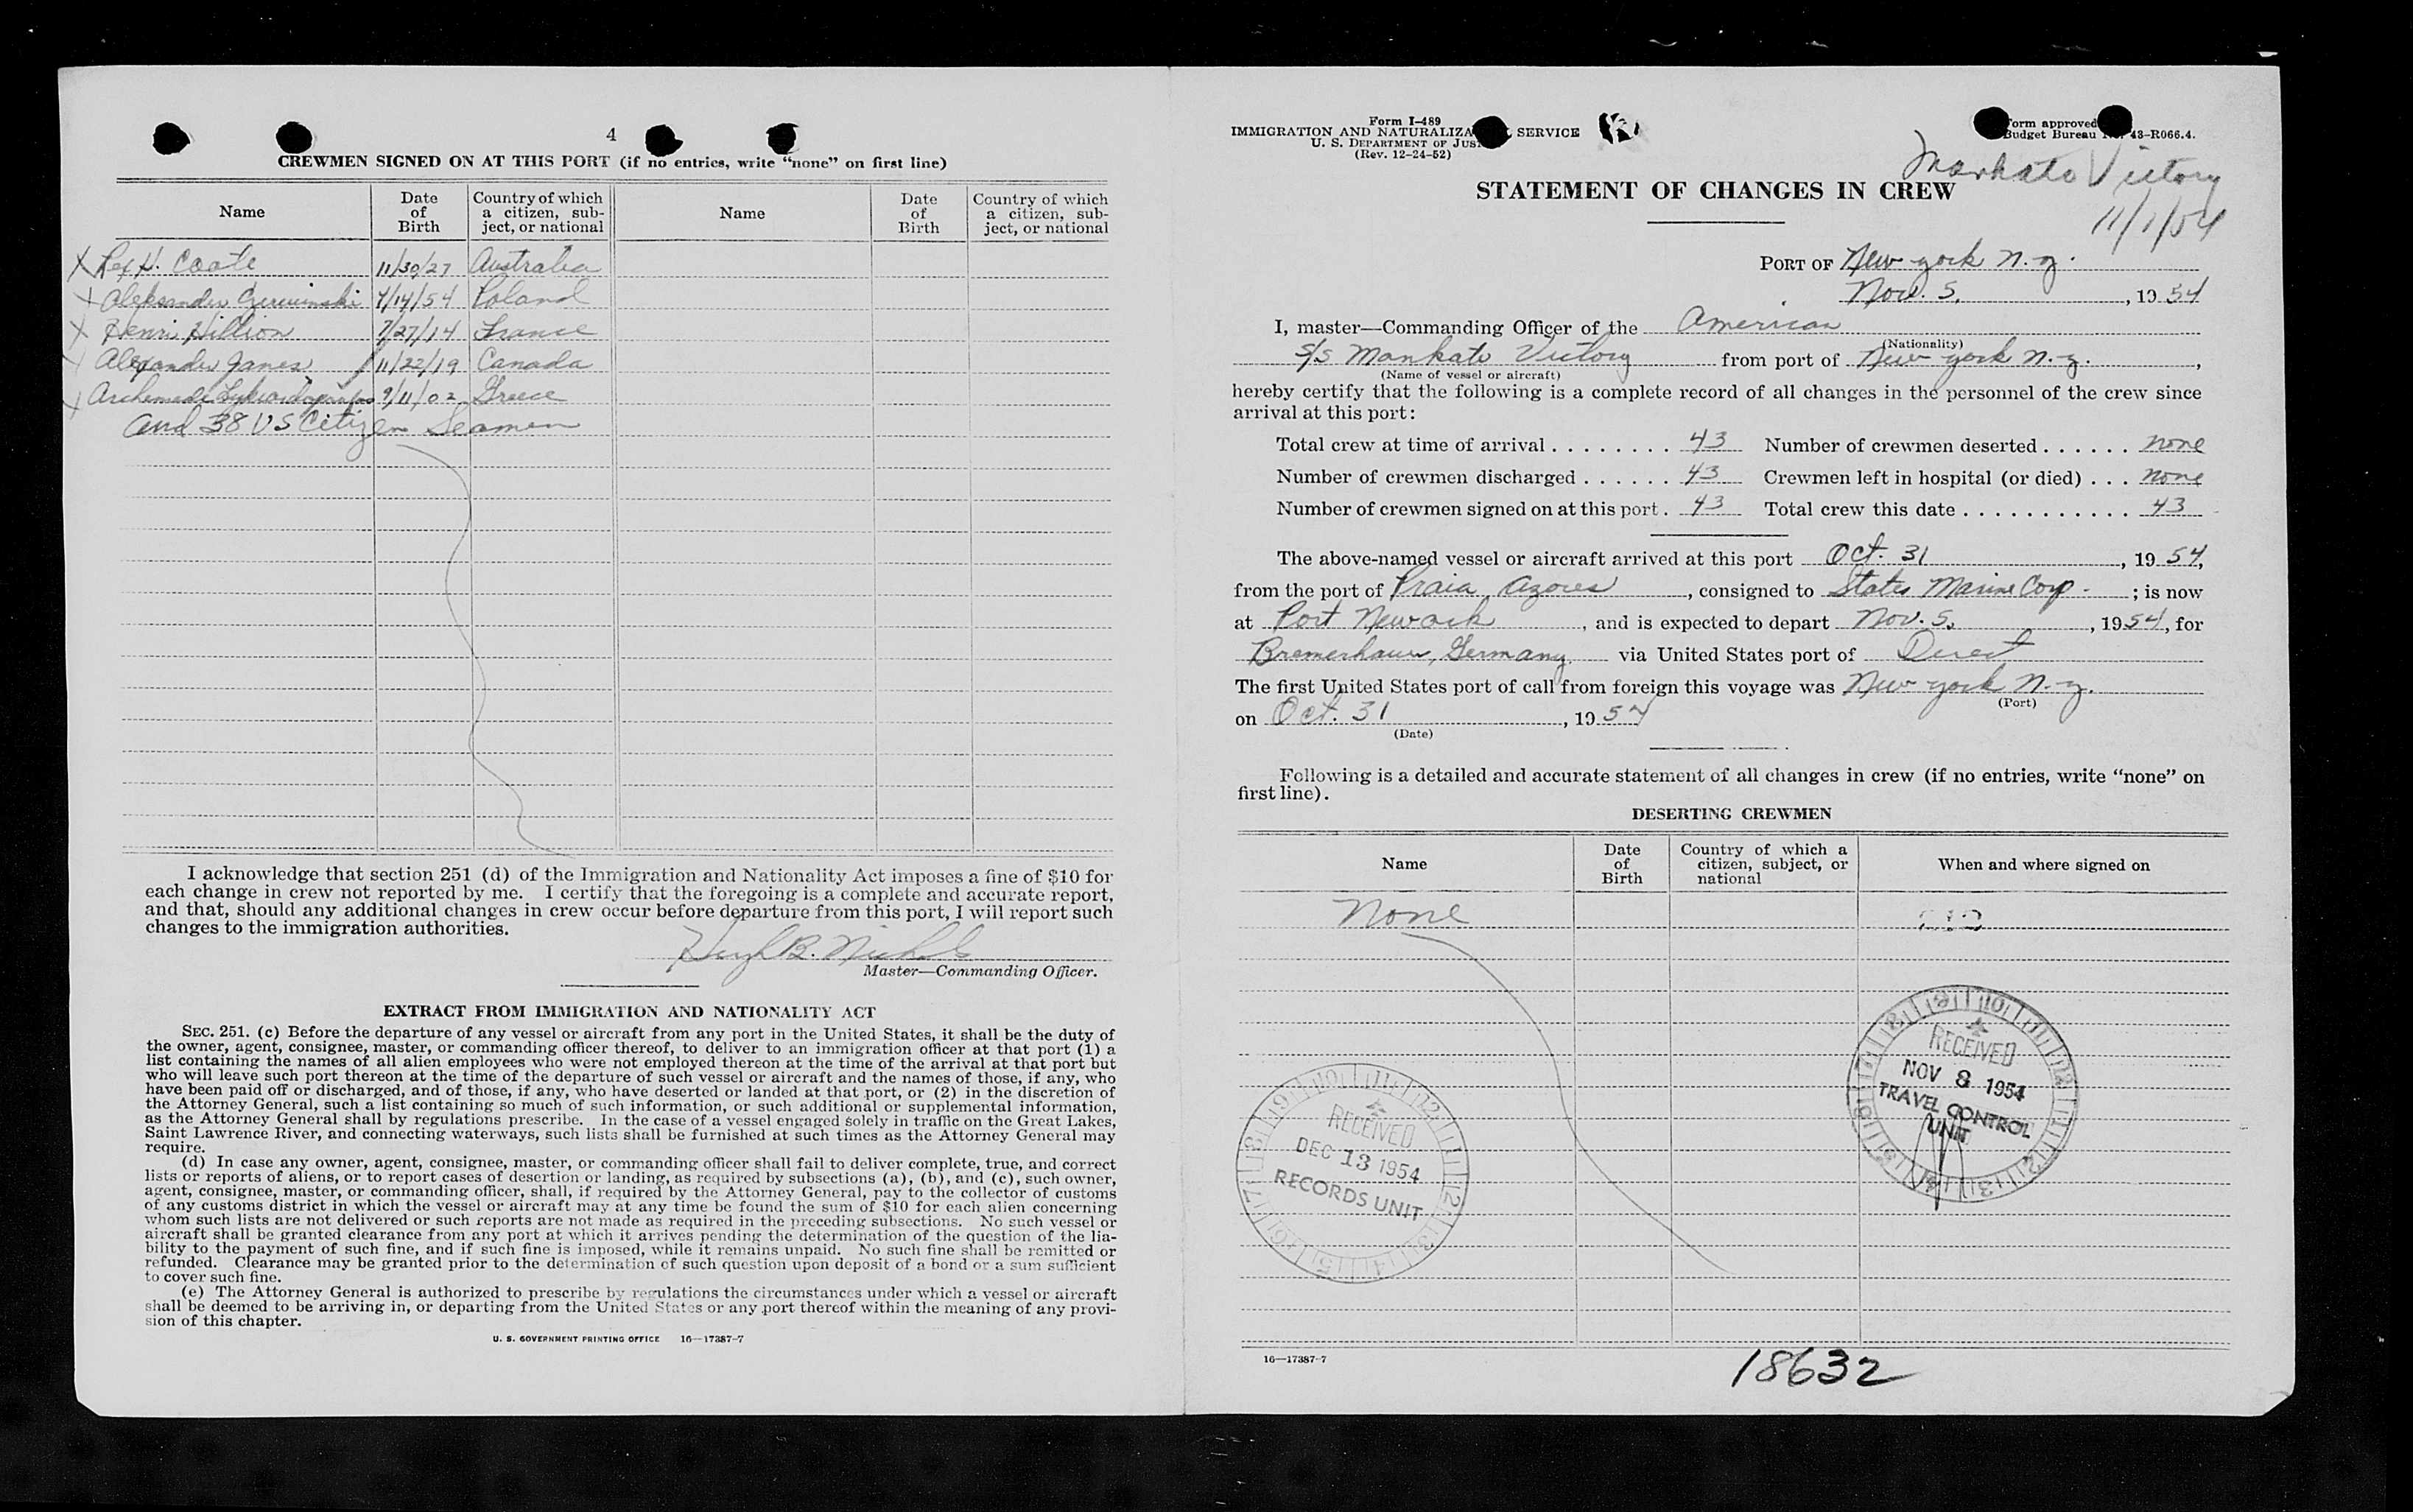 4
CREWMEN SIGNED ON AT THIS PORT (if no entries, write “none” on first line)
Name Date of Birth Country of which a citizen, subject, or national Name Date of Birth Country of which a citizen, subject, or national
X Rex H. Coate 11/30/27 Australia
X Aleksander 4/14/54 Poland
X Henri Hillion 7/27/14 France
Alexander Janes 11/22/19 Canada
9/11/02 Greece
and 38 US Citizen Seamen
I acknowledge that section 251 (d) of the Immigration and Nationality Act imposes a fine of $10 for
each change in crew not reported by me. I certify that the foregoing is a complete and accurate report,
and that, should any additional changes in crew occur before departure from this port, I will report such
changes to the immigration authorities.
B.
Master—Commanding Officer.
EXTRACT FROM IMMIGRATION AND NATIONALITY ACT
SEC. 251. (c) Before the departure of any vessel or aircraft from any port in the United States, it shall be the duty of
the owner, agent, consignee, master, or commanding officer thereof, to deliver to an immigration officer at that port (1) a
list containing the names of all alien employees who were not employed thereon at the time of the arrival at that port but
who will leave such port thereon at the time of the departure of such vessel or aircraft and the names of those, if any, who
have been paid off or discharged, and of those, if any, who have deserted or landed at that port, or (2) in the discretion of
the Attorney General, such a list containing so much of such information, or such additional or supplemental information,
as the Attorney General shall by regulations prescribe. In the case of a vessel engaged solely in traffic on the Great Lakes,
Saint Lawrence River, and connecting waterways, such lists shall be furnished at such times as the Attorney General may
require.
(d) In case any owner, agent, consignee, master, or commanding officer shall fail to deliver complete, true, and correct
lists or reports of aliens, or to report cases of desertion or landing, as required by subsections (a), (b), and (c), such owner,
agent, consignee, master, or commanding officer, shall, if required by the Attorney General, pay to the collector of customs
of any customs district in which the vessel or aircraft may at any time be found the sum of $10 for each alien concerning
whom such lists are not delivered or such reports are not made as required in the preceding subsections. No such vessel or
aircraft shall be granted clearance from any port at which it arrives pending the determination of the question of the lia-
bility to the payment of such fine, and if such fine is imposed, while it remains unpaid. No such fine shall be remitted or
refunded. Clearance may be granted prior to the determination of such question upon deposit of a bond or a sum sufficient
to cover such fine.
(e) The Attorney General is authorized to prescribe by regulations the circumstances under which a vessel or aircraft
shall be deemed to be arriving in, or departing from the United States or any port thereof within the meaning of any provi-
sion of this chapter.
U. S. GOVERNMENT PRINTING OFFICE 16—17387-7
Form I-489
IMMIGRATION AND NATURALIZA SERVICE
U. S. DEPARTMENT OF JUS
(Rev. 12-24-52)
orm approved
Budget Bureau 43-R066.4.
Mankato Victory
11/1/54
STATEMENT OF CHANGES IN CREW
PORT OF New York N.Y.
Nov. 5, 1954
I, master—Commanding Officer of the American
(Nationality)
S/S Mankato Victory from port of New York N.Y.,
(Name of vessel or aircraft)
hereby certify that the following is a complete record of all changes in the personnel of the crew since
arrival at this port:
Total crew at time of arrival . . . . . . . . 43 Number of crewmen deserted . . . . . . none
Number of crewmen discharged . . . . . . 43 Crewmen left in hospital (or died) . . . none
Number of crewmen signed on at this port . 43 Total crew this date . . . . . . . . . . . 43
The above-named vessel or aircraft arrived at this port Oct. 31, 1954,
from the port of Praia, Azores, consigned to States Marine Corp.; is now
at Port Newark, and is expected to depart Nov. 5, 1954, for
Bremerhaven, Germany via United States port of Direct
The first United States port of call from foreign this voyage was New York N.Y.
(Port)
on Oct. 31, 1954
(Date)
Following is a detailed and accurate statement of all changes in crew (if no entries, write “none” on
first line).
DESERTING CREWMEN
Name Date of Birth Country of which a citizen, subject, or national When and where signed on
None
RECEIVED
NOV 8 1954
TRAVEL CONTROL
UNIT
RECEIVED
DEC 13 1954
RECORDS UNIT
16—17387-7
18632